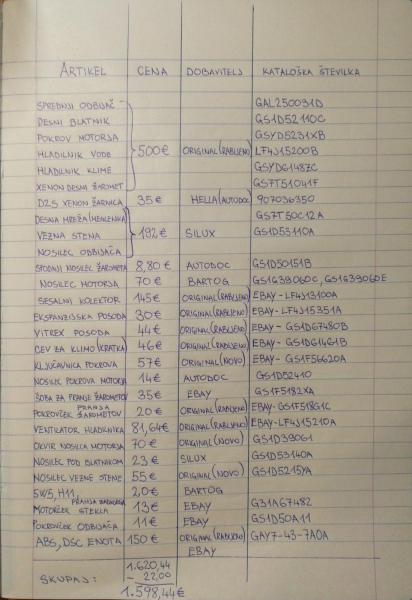 ARTIKEL CENA DOBAVITELJ KATALOŠKA ŠTEVILKA
SPREDNJI ODBIJAČ GAL250031D
DESNI BLATNIK GS1D52110C
POKROV MOTORJA GSYD5231XB
HLADILNIK VODE 500€ ORIGINAL (RABLJENO) LF4J15200B
HLADILNIK KLIME GSYD6148ZC
XENON DESNI ŽAROMET GS7T51041F
D2S XENON ŽARNICA 35€ HELLA (AUTODOC) 907036350
DESNA MREŽA (MEGLENKA) GS7T50C12A
VEZNA STENA 192€ SILUX GS1D53110A
NOSILEC ODBIJAČA
SPODNJI NOSILEC ŽAROMETA 8,80€ AUTODOC GS1D50151B
NOSILEC MOTORJA 70€ BARTOG GS1G39060C, GS1G39060E
SESALNI KOLEKTOR 145€ ORIGINAL (RABLJENO) EBAY-LF4J13100A
EKSPANZIJSKA POSODA 30€ ORIGINAL (RABLJENO) EBAY-LF4J15351A
VITREX POSODA 44€ ORIGINAL (RABLJENO) EBAY-GS1D67480B
CEV ZA KLIMO (KRATKA) 46€ ORIGINAL (RABLJENO) EBAY-GS1D61461B
KLJUČAVNICA POKROVA 57€ ORIGINAL (NOVO) EBAY-GS1F56620A
NOSILEC POKROVA MOTORJA 14€ AUTODOC GS1D52410
ŠOBA ZA PRANJE ŽAROMETOV 35€ EBAY GS1F5182XA
POKROVČEK PRANJA ŽAROMETOV 20€ ORIGINAL (RABLJENO) EBAY-GS1F518G1C
VENTILATOR HLADILNIKA 81,64€ ORIGINAL (RABLJENO) EBAY-LF4J15210A
OKVIR NOSILCA MOTORJA 70€ ORIGINAL (NOVO) GS1D39061
NOSILEC POD BLATNIKOM 23€ SILUX GS1D53140A
NOSILEC VEZNE STENE 55€ ORIGINAL (NOVO) GS1D5215YA
5W5, H11, 2,0€ BARTOG
MOTORČEK PRANJA STEKLA 13€ EBAY G31A67482
POKROVČEK ODBIJAČA 11€ EBAY GS1D50A11
ABS, DSC ENOTA 150€ ORIGINAL (RABLJENO) GAY7-43-7A0A
EBAY
1.620,44
SKUPAJ: - 22,00
1.598,44€